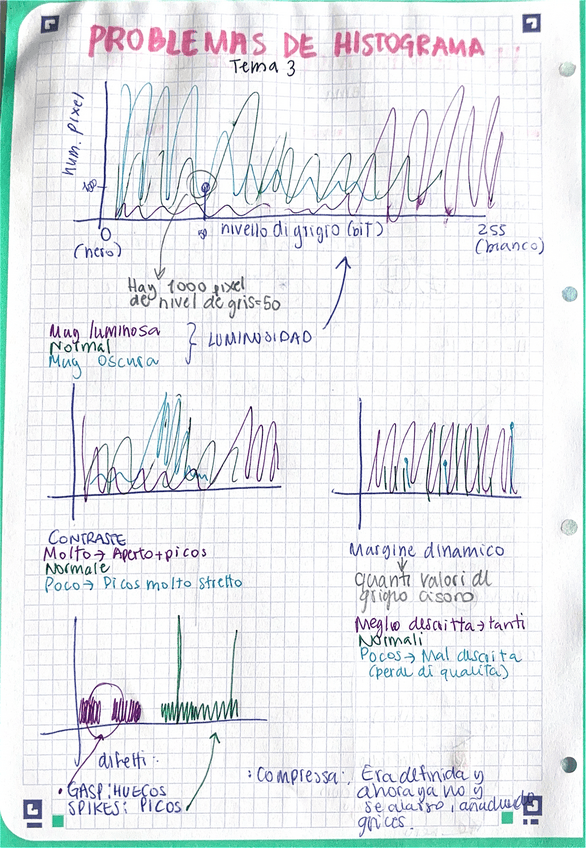 PROBLEMAS DE HISTOGRAMA
Tema 3
num. pixel
100
0
50
nivello di grigro (bit)
255
(nero)
(bianco)
Hay 1000 pixel
de nivel de gris=50
Muy luminosa
Normal
Muy oscura
LUMINOSIDAD
CONTRASTE
Molto → Aperto + picos
Normale
Poco → Picos molto stretto
Margine dinamico
quanti valori di
grigio ci sono
Meglio descritta → tanti
Normali
Pocos → Mal descrita
(perde di qualità)
difetti:
• GASP: HUECOS
SPIKES: PICOS
: Compressa:
Era definida y
ahora ya no y
se alarso, añadiendo
grices.